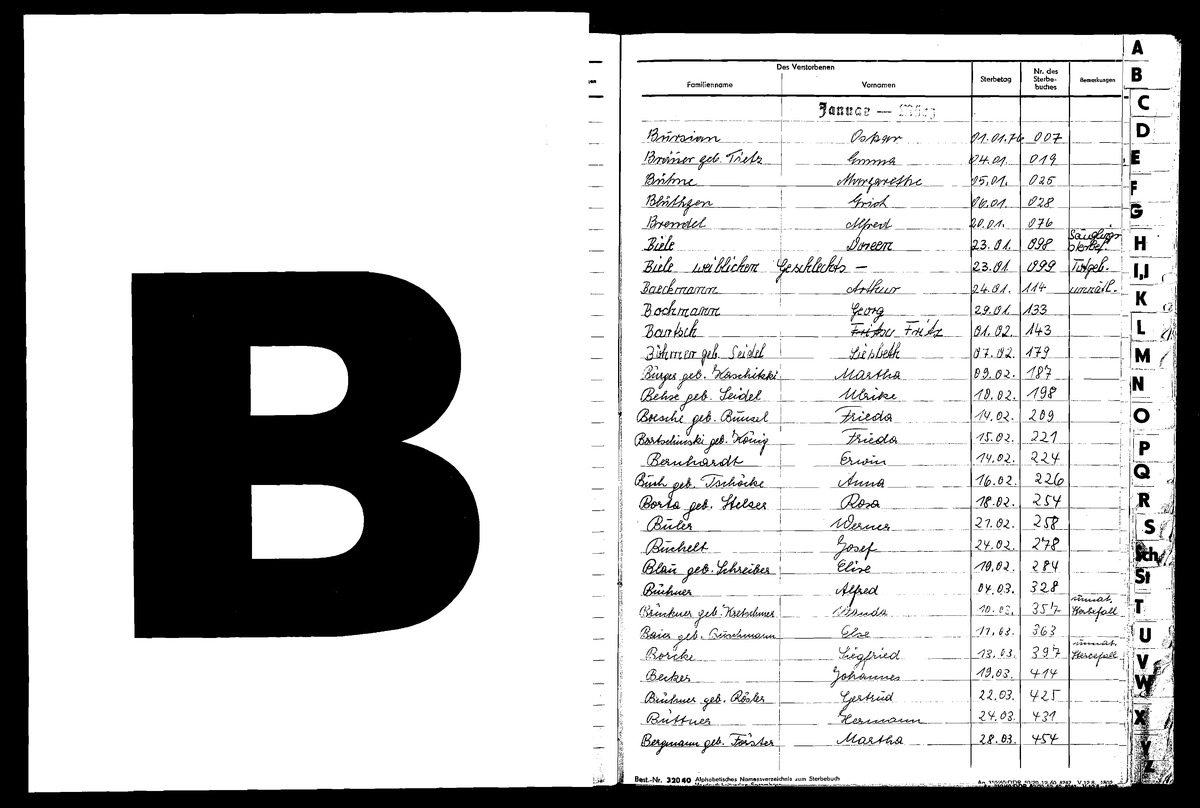 B
Des Verstorbenen
Familienname Vornamen Sterbetag Nr. des Sterbe-buches Bemerkungen
Januar — März
Bursian Oskar 01.01.76 007
Bräuer geb. Tietz Emma 04.01. 019
Bühne Margarethe 05.01. 025
Blüthgen Erich 06.01. 028
Brendel Alfred 20.01. 076
Biele Doreen 23.01. 098 Säuglings sterbef.
Biele weiblichen Geschlechts — 23.01 099 Totgeb.
Baeckmann Arthur 24.01. 114 unnatl.
Bochmann Georg 29.01. 133
Bartsch Fritz 01.02. 143
Böhmer geb. Seidel Liesbeth 07.02. 179
Bürger geb. Martha 09.02. 187
Behse geb. Seidel Ulrike 10.02. 198
Boesche geb. Bünsel Frieda 14.02. 209
Bartschinski geb. König Frieda 15.02. 221
Bernhardt Erwin 14.02. 224
Buch geb. Tschöcke Anna 16.02. 226
Borta geb. Stelzer Rosa 18.02. 254
Büler Werner 21.02. 258
Buchelt Josef 24.02. 278
Blau geb. Schreiber Elise 10.02. 284
Büchner Alfred 04.03. 328
Brückner geb. Kretschmer Wanda 10.03. 357 unnat. Sterbefall
Baier geb. Buschmann Else 11.03. 363
Borcke Siegfried 13.03. 397 unnat. Sterbefall
Becker Johannes 19.03. 414
Brückner geb. Rösler Gertrud 22.03. 425
Büttner Hermann 24.03. 431
Bergmann geb. Förster Martha 28.03. 454
Best.-Nr. 32040 Alphabetisches Namensverzeichnis zum Sterbebuch
A
B
C
D
E
F
G
H
I,J
K
L
M
N
O
P
Q
R
S
Sch
St
T
U
V
W
X
Y
Z